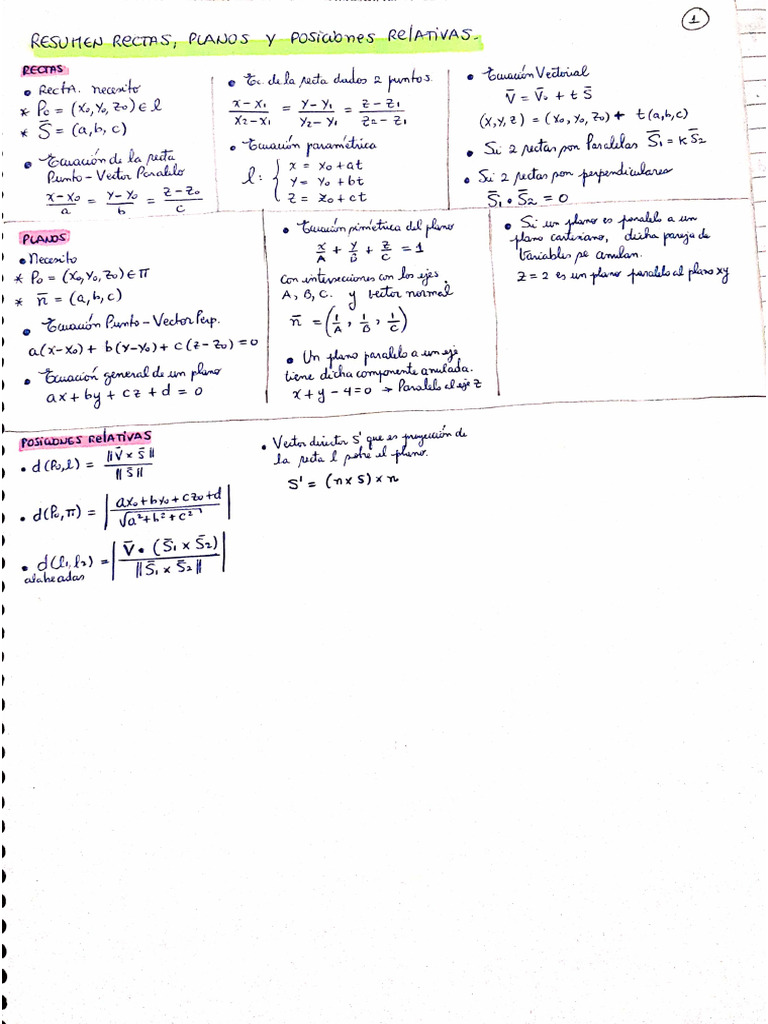 1
RESUMEN RECTAS, PLANOS Y POSICIONES RELATIVAS.
RECTAS
• RECTA. necesito
* P₀ = (x₀, y₀, z₀) ∈ l
* S̄ = (a, b, c)
• Ecuación de la recta
Punto - Vector Paralelo
(x-x₀)/a = (y-y₀)/b = (z-z₀)/c
• Ec. de la recta dados 2 puntos.
(x-x₁)/(x₂-x₁) = (y-y₁)/(y₂-y₁) = (z-z₁)/(z₂-z₁)
• Ecuación paramétrica
l: { x = x₀ + at
y = y₀ + bt
z = z₀ + ct
• Ecuación Vectorial
V̄ = V̄₀ + t S̄
(x, y, z) = (x₀, y₀, z₀) + t(a, b, c)
• Si 2 rectas son Paralelas S̄₁ = K S̄₂
• Si 2 rectas son perpendiculares
S̄₁ • S̄₂ = 0
PLANOS
• Necesito
* P₀ = (x₀, y₀, z₀) ∈ π
* n̄ = (a, b, c)
• Ecuación Punto - Vector Perp.
a(x-x₀) + b(y-y₀) + c(z-z₀) = 0
• Ecuación general de un plano
ax + by + cz + d = 0
• Ecuación simétrica del plano
x/A + y/B + z/C = 1
con intersecciones con los ejes
A, B, C. y vector normal
n̄ = (1/A, 1/B, 1/C)
• Un plano paralelo a un eje
tiene dicha componente anulada.
x + y - 4 = 0 → Paralelo al eje z
• Si un plano es paralelo a un
plano cartesiano, dicha pareja de
variables se anulan.
z = 2 es un plano paralelo al plano xy
POSICIONES RELATIVAS
• d(P₀, l) = ||V̄ x S̄|| / ||S̄||
• d(P₀, π) = |(ax₀ + by₀ + cz₀ + d) / √(a² + b² + c²)|
• d(l₁, l₂) = |V̄ • (S̄₁ x S̄₂) / ||S̄₁ x S̄₂|||
alabeadas
• Vector director S' que es proyección de
la recta l sobre el plano.
S' = (n x S) x n